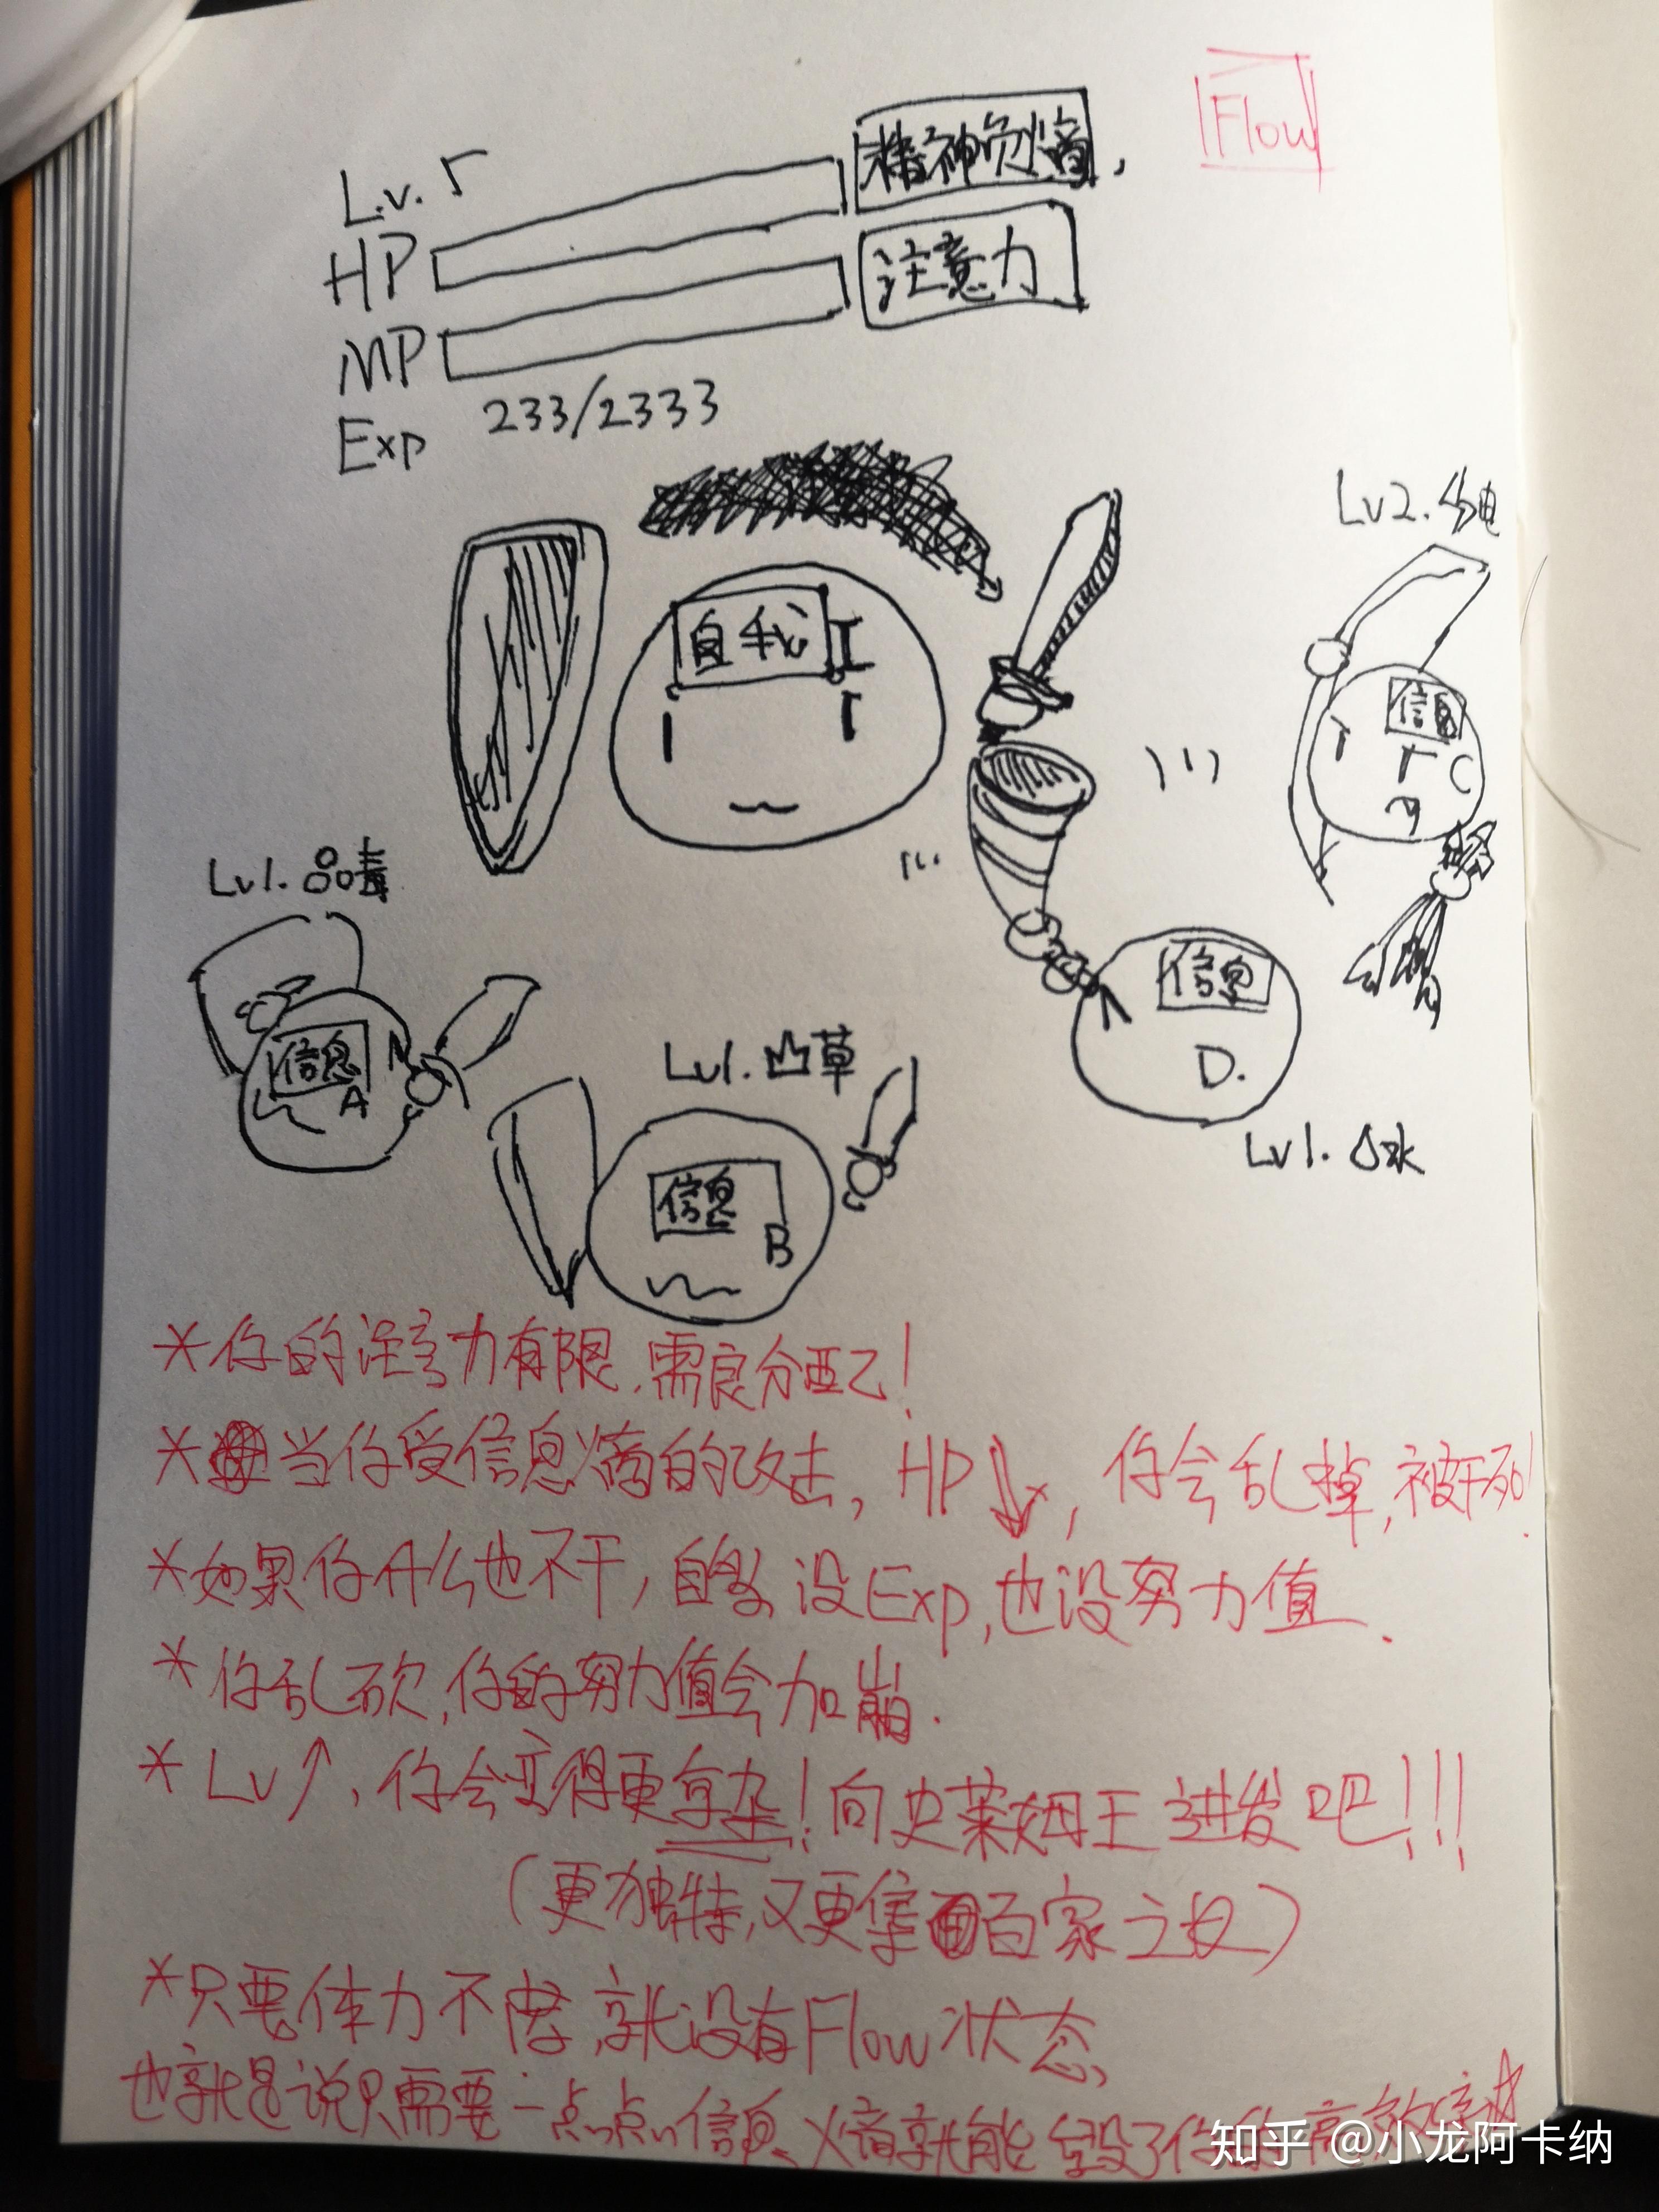 Flow
Lv. 5
HP 精神负熵
MP 注意力
Exp 233/2333
Lv2. 电
自我 I
信息 C
Lv1. 品毒
信息 A
Lv1. 凸草
信息 B
信息 D.
Lv1. 水
*你的注意力有限,需良分配!
*当你受信息熵的攻击, HP↓, 你会乱掉,被干死!
*如果你什么也不干, 自 没Exp,也没努力值.
*你乱砍,你的努力值会加崩.
*Lv↑,你会变得更复杂!向史莱姆王进发吧!!!
(更独特,又更集百家之 )
*只要体力不 ,就没有Flow状态
也就是说只需要一点点信息熵就能毁了你的高
知乎 @小龙阿卡纳